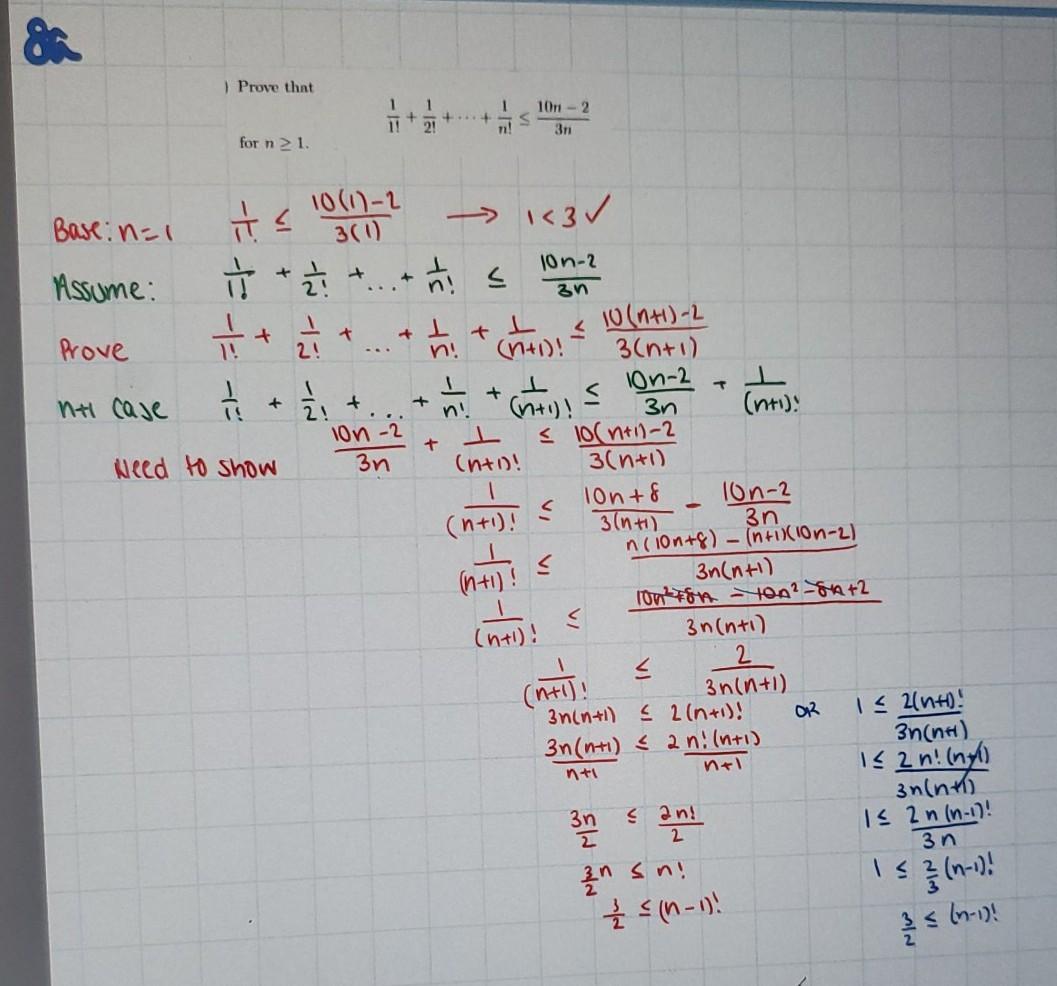 8a
) Prove that
1/1! + 1/2! + ··· + 1/n! ≤ (10n − 2)/3n
for n ≥ 1.
Base: n=1 1/1! ≤ (10(1)-2)/3(1) → 1<3 ✓
Assume: 1/1! + 1/2! + ... + 1/n! ≤ (10n-2)/3n
Prove 1/1! + 1/2! + ... + 1/n! + 1/(n+1)! ≤ (10(n+1)-2)/3(n+1)
n+1 case 1/1! + 1/2! + ... + 1/n! + 1/(n+1)! ≤ (10n-2)/3n + 1/(n+1)!
Need to show (10n-2)/3n + 1/(n+1)! ≤ (10(n+1)-2)/3(n+1)
1/(n+1)! ≤ (10n+8)/3(n+1) - (10n-2)/3n
1/(n+1)! ≤ (n(10n+8) - (n+1)(10n-2))/3n(n+1)
1/(n+1)! ≤ (10n²+8n - 10n² - 8n+2)/3n(n+1)
1/(n+1)! ≤ 2/3n(n+1)
3n(n+1) ≤ 2(n+1)! OR 1 ≤ 2(n+1)!/3n(n+1)
3n(n+1)/n+1 ≤ 2n!(n+1)/n+1 1 ≤ 2n!(n+1)/3n(n+1)
3n/2 ≤ 2n!/2 1 ≤ 2n(n-1)!/3n
3/2 n ≤ n! 1 ≤ 2/3 (n-1)!
3/2 ≤ (n-1)! 3/2 ≤ (n-1)!